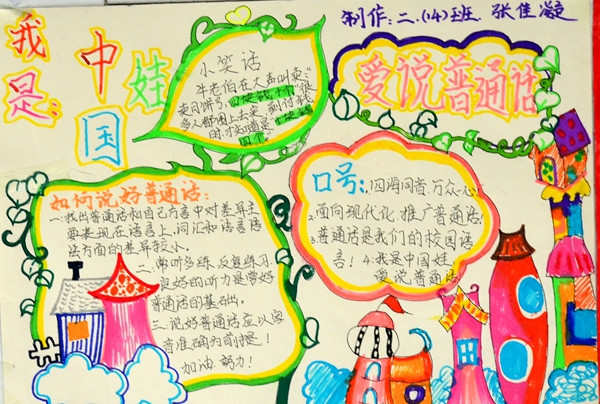 制作:二.(14)班. 张佳凝
我是中国娃
爱说普通话
小笑话
牛老伯在大声叫卖:
卖月饼
多人都围上去买
时才知道是
口号:1.四海同音 万众一心
2.面向现代化 推广普通话
3.普通话是我们的校园语
言! 4.我是中国娃
爱说普通话
如何说好普通话:
一.找出普通话和自己方言中对差异主
要表现在语音上,词汇和语言语
法方面的差异较小。
二.常听多练,反复练习.
良好的听力是学好
普通话的基础。
三.说好普通话应以字
音准确为前提!
加油 努力!